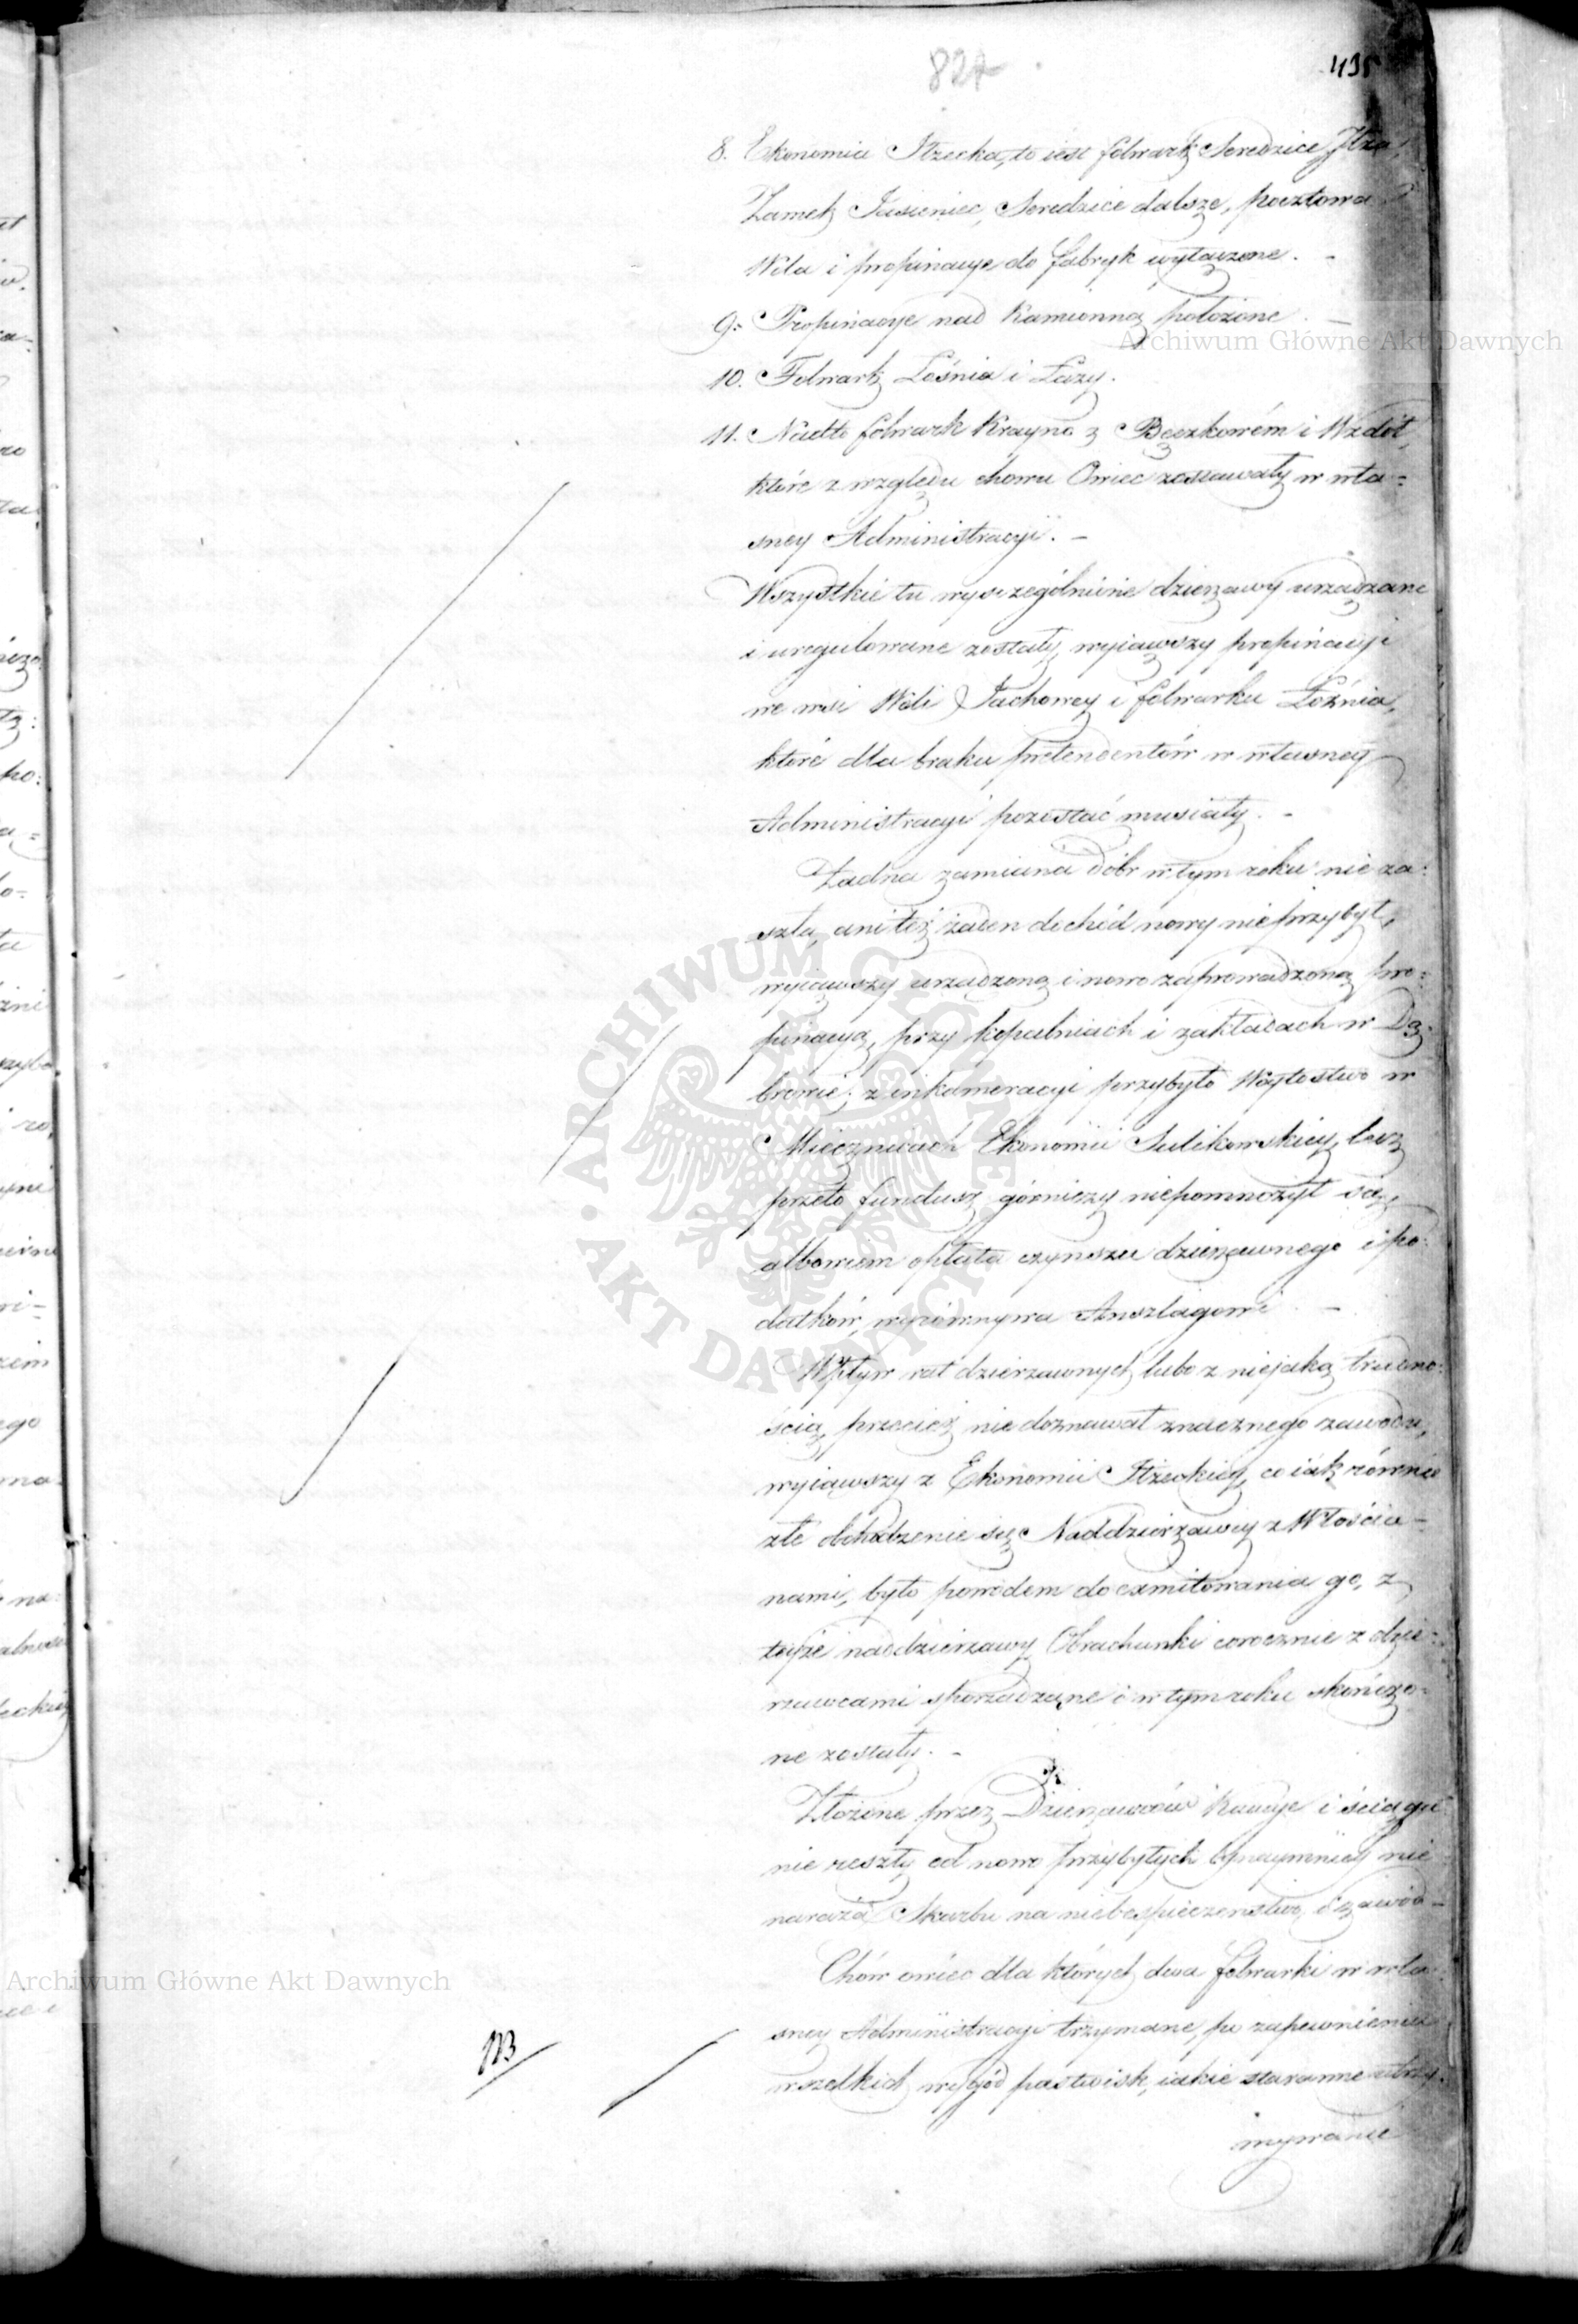 827
495
8. Ekonomia Iłzecka, to iest folwark Seredzice, Iłża,
Zamek Jasieniec, Seredzice dalsze, pocztowa
Wola i propinacye do fabryk wyłączone. -
9. Propinacye nad Kamienną położone. -
10. Folwark Leśnia i Łazy.
11. Nadto folwark Krayno z Bęczkowém i Wzdół,
które z względu chowu Owiec zostawały w wła=
sney Administracyi. -
Wszystkie tu wyszczególnione dzierżawy urządzane
i uregulowane zostały, wyiąwszy propinacyi
we wsi Woli Jachowey i folwarku Leśnia,
które dla braku pretendentów w własney
Administracyi pozostać musiały. -
Żadna zamiana dóbr w tym roku nie za=
szła, ani też żaden dochód nowy nie przybył,
wyiąwszy urządzoną i nowo zaprowadzoną pro=
pinacyą, przy kopalniach i zakładach w Dą=
browie; z inkameracyi przybyło Wóytostwo w
Mierzęcicach Ekonomii Sulikowskiey, lecz
przeto fundusz górniczy niepomnożył się,
albowiem opłata czynszu dzierżawnego i po=
datków, wyrównywa Anszlagowi. -
Wpływ rat dzierżawnych lubo z niejaką trudno=
ścią, przecież nie doznawał znacznego zawodu,
wyiąwszy z Ekonomii Iłzeckiey, co iak równie
złe obchodzenie się Naddzierżawcy z Włościa=
nami, było powodem do exmitowania go, z
teyże naddzierżawy Obrachunki corocznie z dzie=
rzawcami sporządzane i w tym roku skończo=
ne zostały. -
Złożone przez Dzierżawców Kaucye i ściągnie
nie reszty od nowo przybyłych bynaymniey nie
naraża Skarbu na niebespieczeństwo i zawód -
Chów owiec dla których dwa folwarki w wła=
sney Administracyi trzymane, po zapewnieniu
wszelkich wygód pastwisk, iakie staranne utrzy=
mywanie
123
Archiwum Główne Akt Dawnych
Archiwum Główne Akt Dawnych
ARCHIWUM GŁÓWNE AKT DAWNYCH